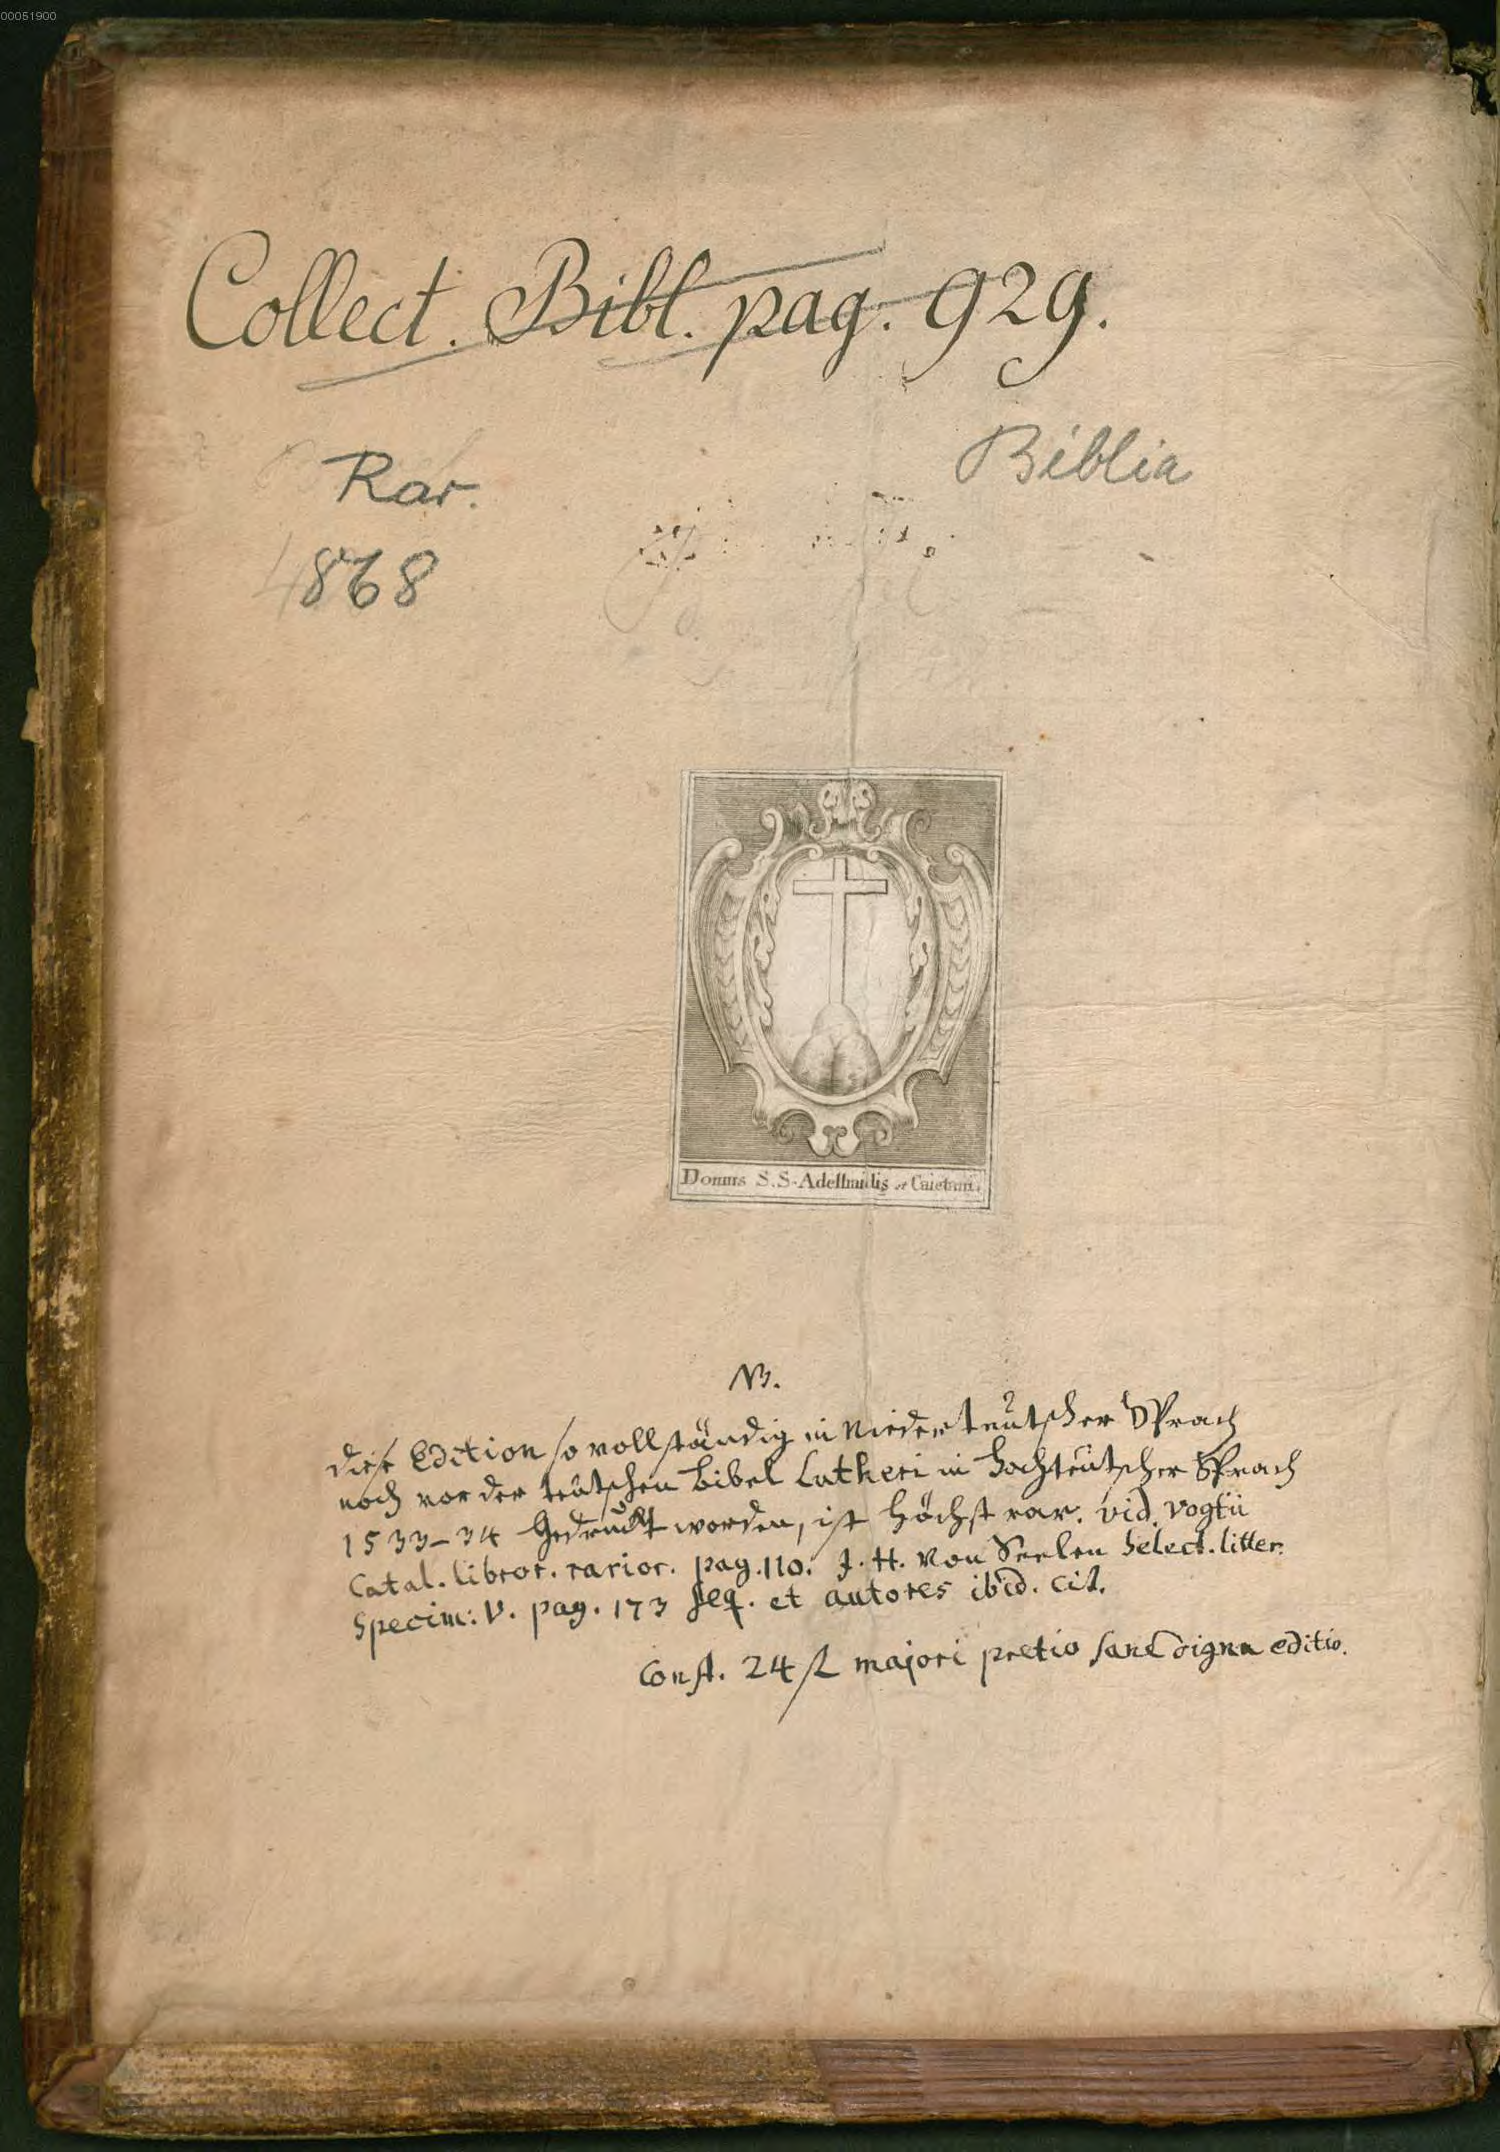 00051900
Collect. Bibl. pag. 929.
Biblia
Rar.
4868
Domus S.S. Adelhaidis et Caietani.
NB.
diese Edition so vollständig in Niederteutscher Sprach
noch vor der teütschen bibel Lutheri in hochteütscher Sprach
1533-34 gedruckt worden, ist höchst rar. vid. vogtii
Catal. libror. rarior. pag. 110. J. H. von Seelen Select. litter.
Specim: V. pag. 173 seq. et autores ibid. cit.
Const. 24 fl majori pretio sane digna editio.